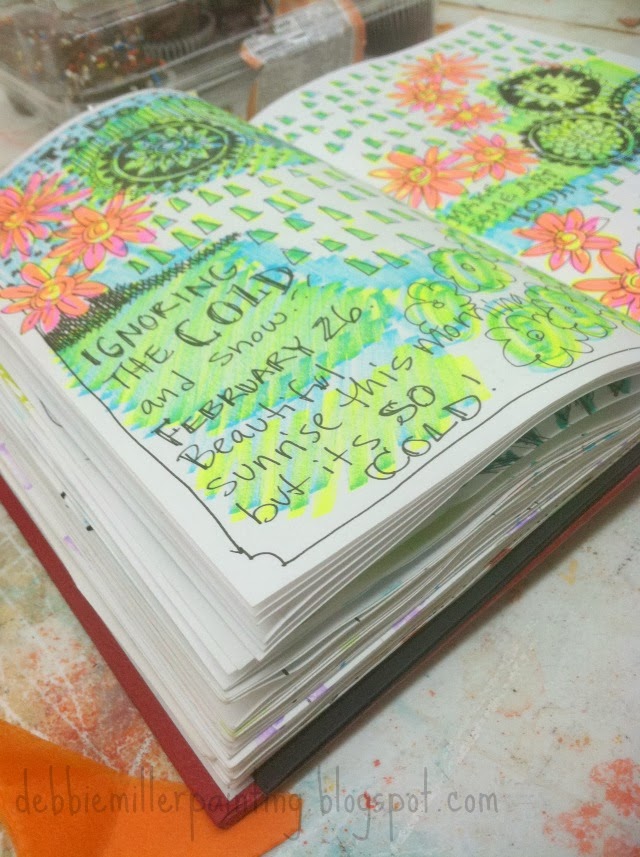 TODAY
IGNORING
THE COLD
and snow.
FEBRUARY 26
Beautiful
sunrise this morning
but it's SO
COLD!
MAKE
SOME ART
TODAY
debbiemillerpainting.blogspot.com